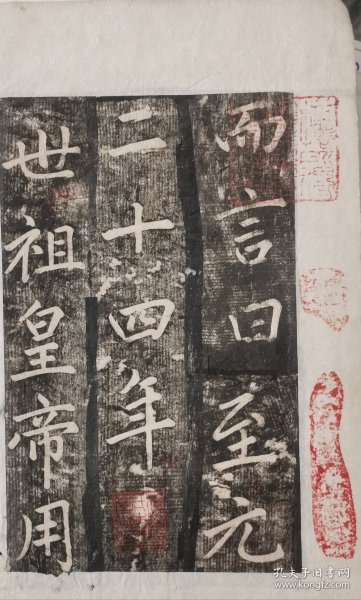 而言曰至元
二十四年
世祖皇帝用
孔夫子旧书网
www.kongfz.com